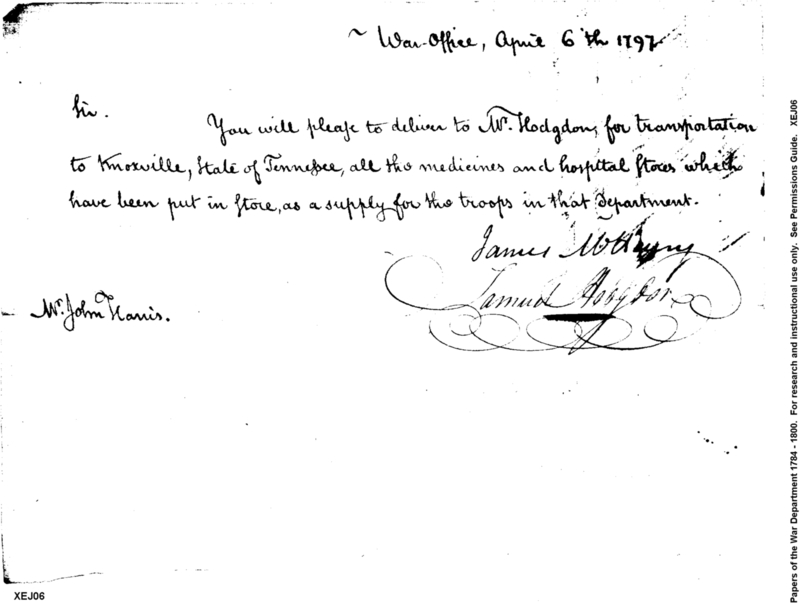 ~ War-Office, April 6th 1797
Sir.
You will please to deliver to Mr. Hodgdon, for transportation
to Knoxville, State of Tennessee, all the medicines and hospital Stores which
have been put in Store, as a supply for the troops in that Department.
James McHenry
Samuel Hodgdon
Mr. John Harris.
XEJ06
Papers of the War Department 1784 - 1800. For research and instructional use only. See Permissions Guide. XEJ06